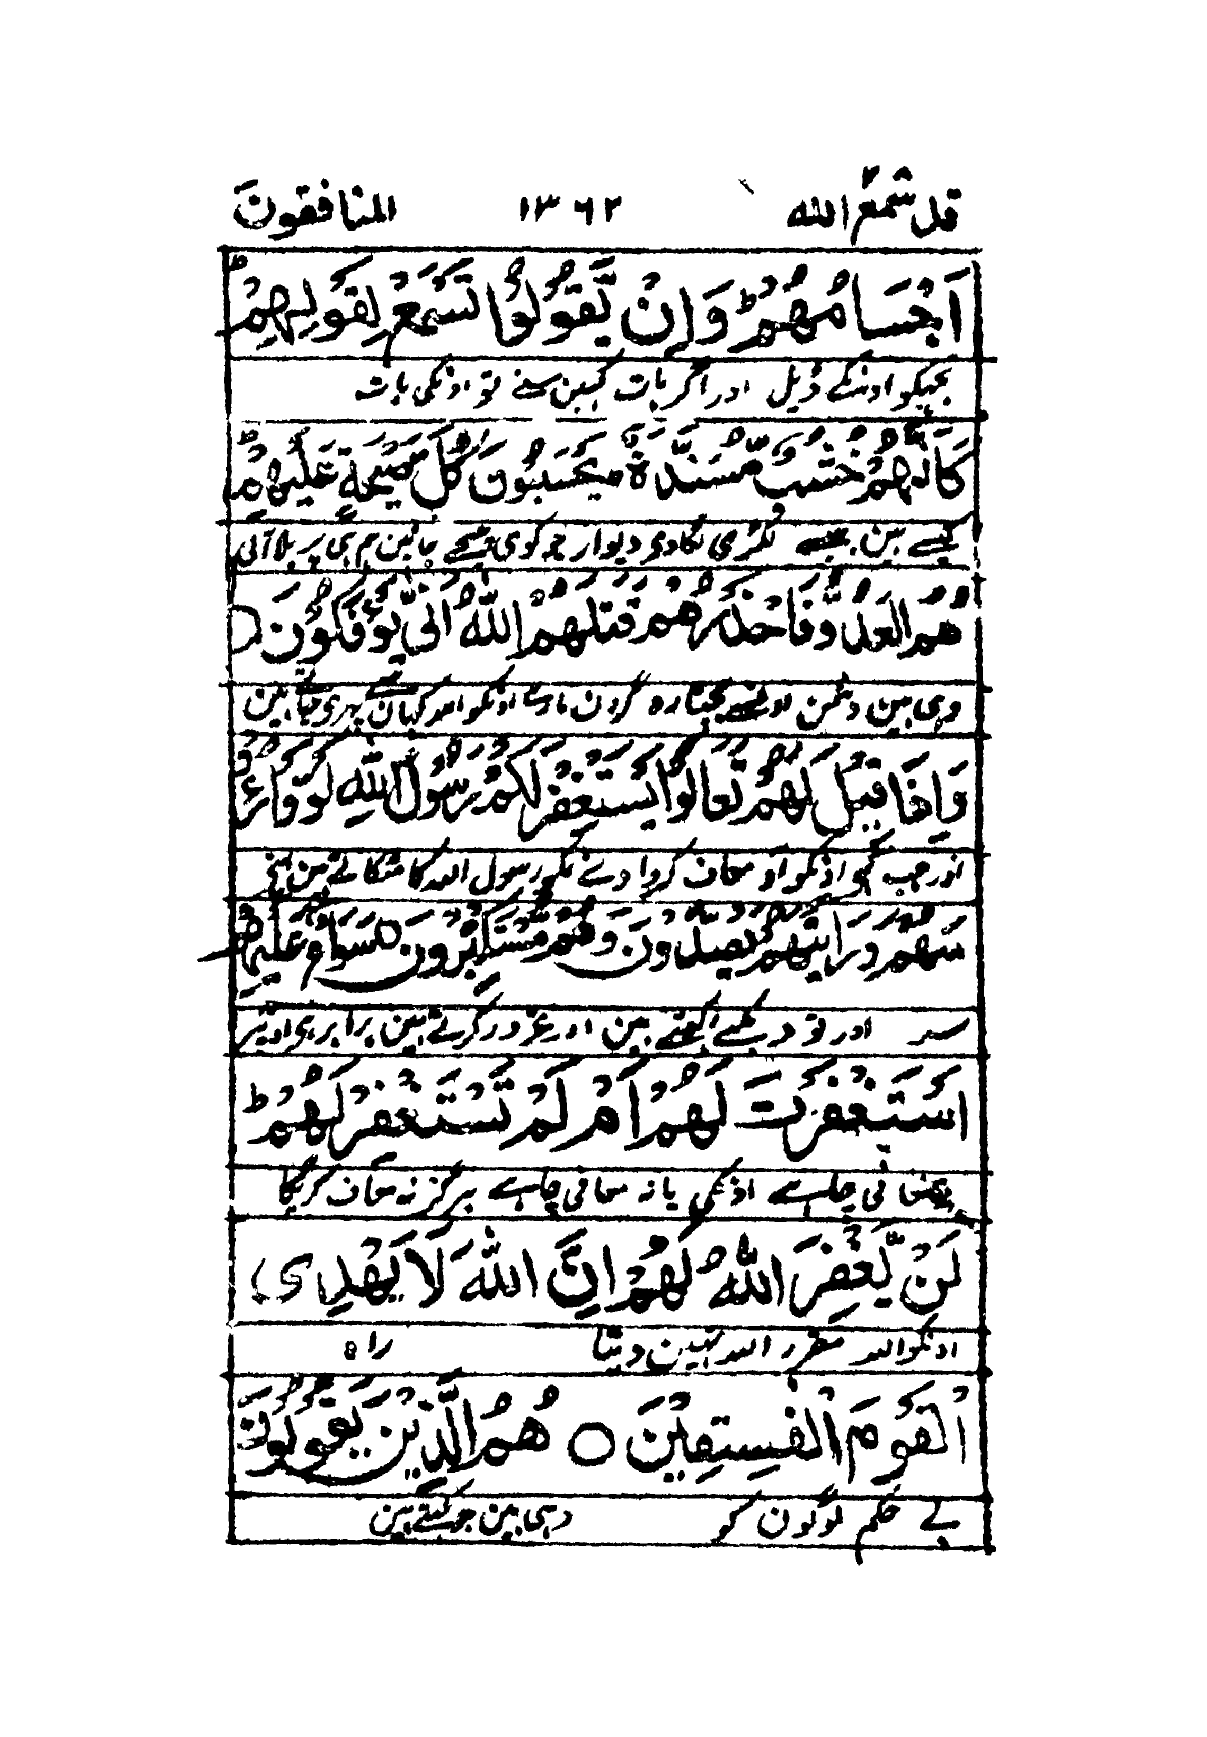 قد سمع الله ١٣٦٢ المنافقون
اَجْسَامُهُمْ ط وَاِنْ يَّقُوْلُوْا تَسْمَعْ لِقَوْلِهِمْ ط
اونکے ڈیل اور اگر بات کہین سنے تو اونکی بات
كَاَنَّهُمْ خُشُبٌ مُّسَنَّدَةٌ يَحْسَبُوْنَ كُلَّ صَيْحَةٍ عَلَيْهِمْ ط
کیسے ہین جیسے لکڑی لگادی دیوار جو کوی چیخے جانین ہم ہی پر بلا آئی
هُمُ الْعَدُوُّ فَاحْذَرْهُمْ قٰتَلَهُمُ اللّٰهُ اَنّٰى يُؤْفَكُوْنَ ○
وہی ہین دشمن اونسے بچتا رہ گردن مارے اونکو اللہ کہان سے پہرے جاتے ہین
وَاِذَا قِيْلَ لَهُمْ تَعَالَوْا يَسْتَغْفِرْ لَكُمْ رَسُوْلُ اللّٰهِ لَوَّوْا رُءُوْ
اور جب کہے اونکو آؤ معاف کروا دے تمکو رسول اللہ کا مٹکاتے ہین اپنے
سَهُمْ وَرَاَيْتَهُمْ يَصُدُّوْنَ وَهُمْ مُّسْتَكْبِرُوْنَ ○ سَوَآءٌ عَلَيْهِمْ
سر اور تو دیکھے اٹکتے ہین اور غرور کرتے ہین برابر ہی اونپر
اَسْتَغْفَرْتَ لَهُمْ اَمْ لَمْ تَسْتَغْفِرْ لَهُمْ ط
معافی چاہے اونکی یا نہ معافی چاہے ہرگز نہ معاف کریگا
لَنْ يَّغْفِرَ اللّٰهُ لَهُمْ اِنَّ اللّٰهَ لَا يَهْدِى
اونکو اللہ مقرر اللہ نہین دیتا راہ
الْقَوْمَ الْفٰسِقِيْنَ ○ هُمُ الَّذِيْنَ يَقُوْلُوْنَ
بے حکم لوگون کو وہی ہین جو کہتے ہین